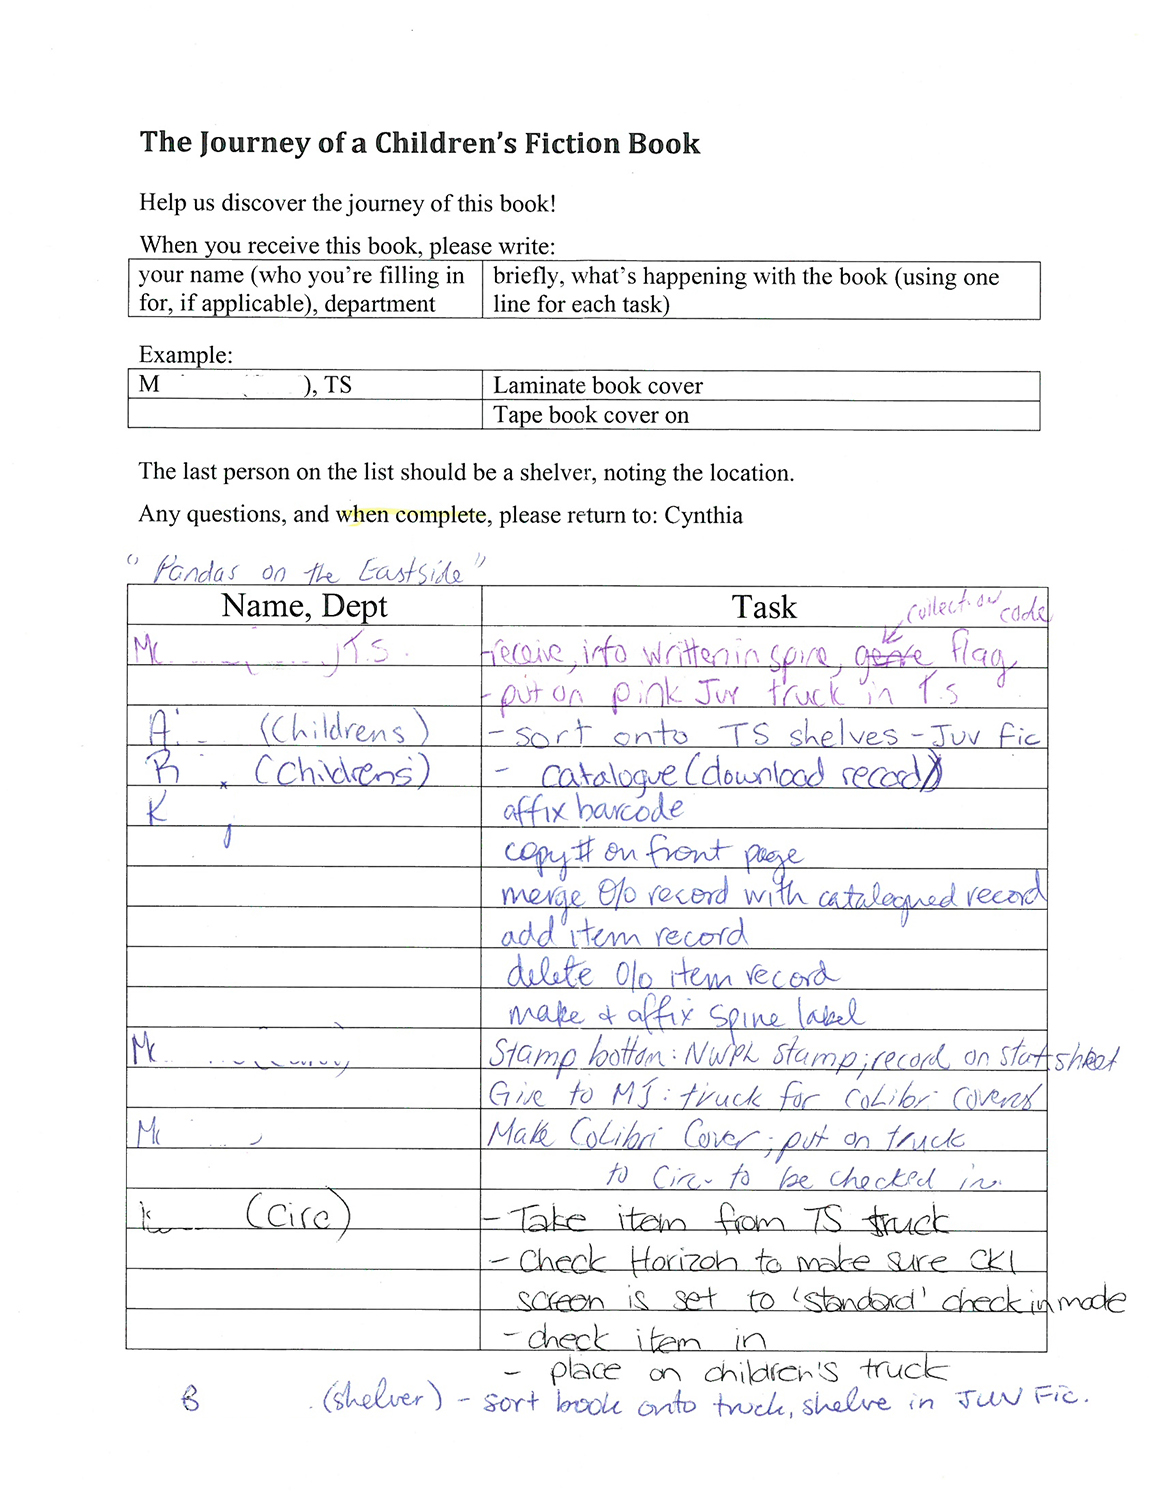 The Journey of a Children's Fiction Book
Help us discover the journey of this book!
When you receive this book, please write:
your name (who you're filling in for, if applicable), department
briefly, what's happening with the book (using one line for each task)
Example:
M ), TS
Laminate book cover
Tape book cover on
The last person on the list should be a shelver, noting the location.
Any questions, and when complete, please return to: Cynthia
"Pandas on the Eastside"
Name, Dept
Task
collection code
T.S.
-receive, info written in spine, genre flag
- put on pink Juv truck in T.S
A. (Childrens)
- sort onto TS shelves - Juv Fic
(Childrens)
- catalogue (download record)
K
affix barcode
copy # on front page
merge O/o record with catalogued record
add item record
delete O/o item record
make & affix spine label
Stamp bottom: NWPL stamp; record on stat sheet
Give to MJ: truck for CoLibri Covers
Make CoLibri Cover; put on truck
to Circ. to be checked in.
(Circ)
- Take item from TS truck
- Check Horizon to make sure CKI
screen is set to 'standard' check in mode
- check item in
- place on children's truck
B (shelver) - sort book onto truck, shelve in JUV Fic.